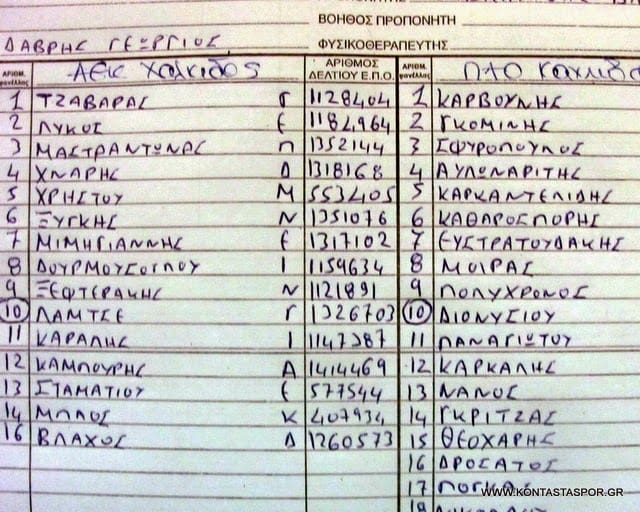 ΒΟΗΘΟΣ ΠΡΟΠΟΝΗΤΗ
ΔΑΒΡΗΣ ΓΕΩΡΓΙΟΣ ΦΥΣΙΚΟΘΕΡΑΠΕΥΤΗΣ
ΑΡΙΘΜ. φανέλλας ΑΕΙΣ ΧΑΛΚΙΔΟΣ ΑΡΙΘΜΟΣ ΔΕΛΤΙΟΥ Ε.Π.Ο. ΑΡΙΘΜ. φανέλλας
1 ΤΖΑΒΑΡΑΣ Γ 1128404 1 ΚΑΡΒΟΥΝΗΣ
2 ΛΥΚΟΣ Ε 1184964 2 ΓΚΟΜΙΝΗΣ
3 ΜΑΣΤΡΑΝΤΩΝΑΣ Π 1352144 3 ΣΦΥΡΟΠΟΥΛΟΣ
4 ΧΝΑΡΗΣ Δ 1318168 4 ΑΥΛΩΝΑΡΙΤΗΣ
5 ΧΡΗΣΤΟΥ Μ 553405 5 ΚΑΡΚΑΝΤΕΛΙΔΗΣ
6 ΞΥΓΚΗΣ Ν 1351076 6 ΚΑΘΑΡΟΣΠΟΡΗΣ
7 ΜΙΜΗΓΙΑΝΝΗΣ Ε 1317102 7 ΕΥΣΤΡΑΤΟΥΔΑΚΗΣ
8 ΔΟΥΡΜΟΥΣΟΓΛΟΥ Ι 1159634 8 ΜΟΙΡΑΣ
9 ΞΕΦΤΕΡΑΚΗΣ Ν 1121891 9 ΠΟΛΥΧΡΟΝΟΣ
10 ΛΑΜΤΣΕ Γ 1326703 10 ΔΙΟΝΥΣΙΟΥ
11 ΚΑΡΑΛΗΣ Ι 1147387 11 ΠΑΝΑΓΙΩΤΟΥ
12 ΚΑΜΠΟΥΡΗΣ Α 1414469 12 ΚΑΡΚΑΛΗΣ
13 ΣΤΑΜΑΤΙΟΥ Ε 577544 13 ΝΑΝΟΣ
14 ΜΠΛΟΣ Κ 407934 14 ΓΚΡΙΤΖΑΣ
16 ΒΛΑΧΟΣ Δ 1260573 15 ΘΕΟΧΑΡΗΣ
16 ΔΡΟΣΑΤΟΣ
17
WWW.KONTASTASPOR.GR
18